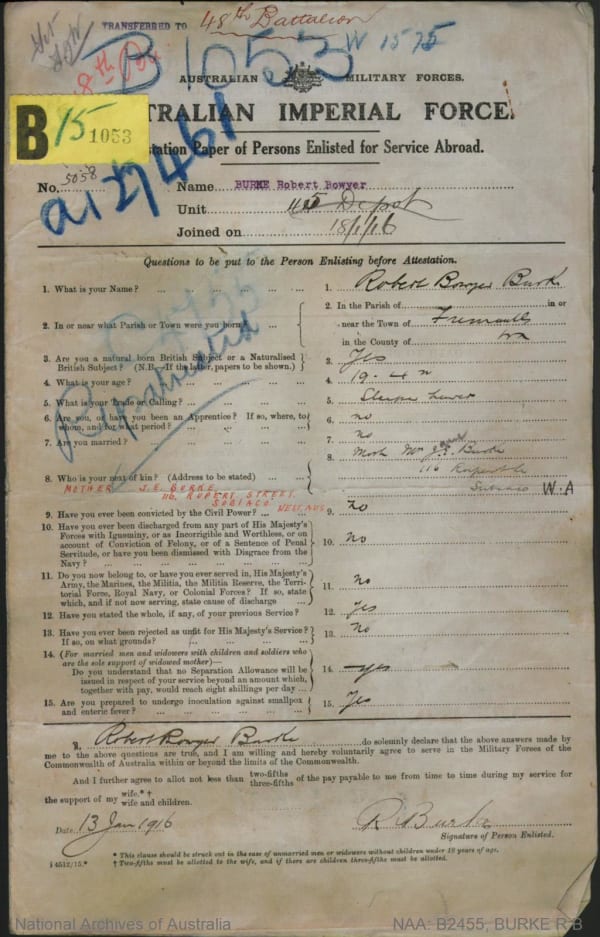 TRANSFERRED TO 48th Battalion
B1053 W 1575
8th
AUSTRALIAN MILITARY FORCES.
B 15 1053
TRALIAN IMPERIAL FORCE.
station Paper of Persons Enlisted for Service Abroad.
a127461
No. 5058 Name BURKE Robert Bowyer
Unit Depot
Joined on 18/1/16
Questions to be put to the Person Enlisting before Attestation.
1. What is your Name? 1. Robert Bowyer Burke
2. In or near what Parish or Town were you born? 2. In the Parish of in or
near the Town of Fremantle
in the County of WA
3. Are you a natural born British Subject or a Naturalised
British Subject? (N.B.—If the latter, papers to be shown.) 3. Yes
4. What is your age? 4. 19-4
5. What is your Trade or Calling? 5.
6. Are you, or have you been an Apprentice? If so, where, to
whom, and for what period? 6. no
7. Are you married? 7. no
8. Who is your next of kin? (Address to be stated) 8. Moth Mrs J. E. Burke
116 Rupert St
Subiaco W.A
MOTHER J.E. BURKE.
116. RUPERT STREET.
SUBIACO WEST. AUS.
9. Have you ever been convicted by the Civil Power? 9. no
10. Have you ever been discharged from any part of His Majesty's
Forces with Ignominy, or as Incorrigible and Worthless, or on
account of Conviction of Felony, or of a Sentence of Penal
Servitude, or have you been dismissed with Disgrace from the
Navy? 10. no
11. Do you now belong to, or have you ever served in, His Majesty's
Army, the Marines, the Militia, the Militia Reserve, the Terri-
torial Force, Royal Navy, or Colonial Forces? If so, state
which, and if not now serving, state cause of discharge 11. no
12. Have you stated the whole, if any, of your previous Service? 12. Yes
13. Have you ever been rejected as unfit for His Majesty's Service?
If so, on what grounds? 13. no
14. (For married men and widowers with children and soldiers who
are the sole support of widowed mother)—
Do you understand that no Separation Allowance will be
issued in respect of your service beyond an amount which,
together with pay, would reach eight shillings per day 14. yes
15. Are you prepared to undergo inoculation against smallpox
and enteric fever? 15. Yes
I, Robert Bowyer Burke do solemnly declare that the above answers made by
me to the above questions are true, and I am willing and hereby voluntarily agree to serve in the Military Forces of the
Commonwealth of Australia within or beyond the limits of the Commonwealth.
And I further agree to allot not less than two-fifths three-fifths of the pay payable to me from time to time during my service for
the support of my wife.*† wife and children.
Date 13 Jan 1916 R B Burke
Signature of Person Enlisted.
* This clause should be struck out in the case of unmarried men or widowers without children under 18 years of age.
§ 4512/15.* † Two-fifths must be allotted to the wife, and if there are children three-fifths must be allotted.
National Archives of Australia NAA: B2455, BURKE R B